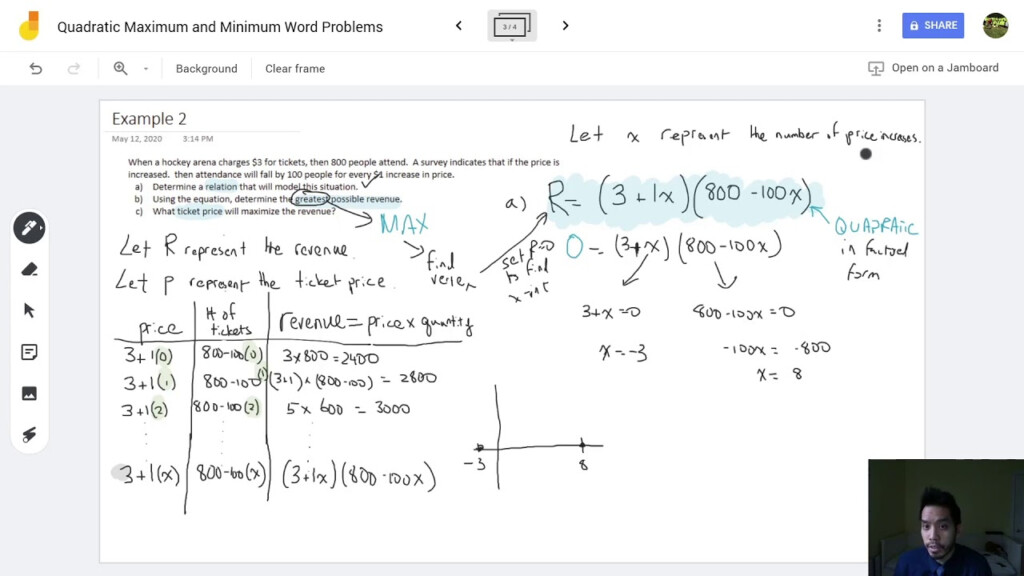 Quadratic Maximum and Minimum Word Problems
3 / 4
SHARE
Background
Clear frame
Open on a Jamboard
Example 2
May 12, 2020 3:14 PM
When a hockey arena charges $3 for tickets, then 800 people attend. A survey indicates that if the price is
increased. then attendance will fall by 100 people for every $1 increase in price.
a) Determine a relation that will model this situation.
b) Using the equation, determine the greatest possible revenue.
c) What ticket price will maximize the revenue?
MAX
find
vertex
Let R represent the revenue.
Let P represent the ticket price.
price
# of
tickets
revenue = price x quantity
3+1(0) 800-100(0) 3 x 800 = 2400
3+1(1) 800-100(1) (3+1) x (800-100) = 2800
3+1(2) 800-100(2) 5 x 600 = 3000
3+1(x) 800-100(x) (3+1x)(800-100x)
Let x represent the number of price increases.
a) R = (3+1x)(800-100x)
QUADRATIC
in factored
form
set P=0
to find
x-int
0 = (3+x)(800-100x)
3+x=0 800-100x=0
x=-3 -100x = -800
x= 8
-3 8